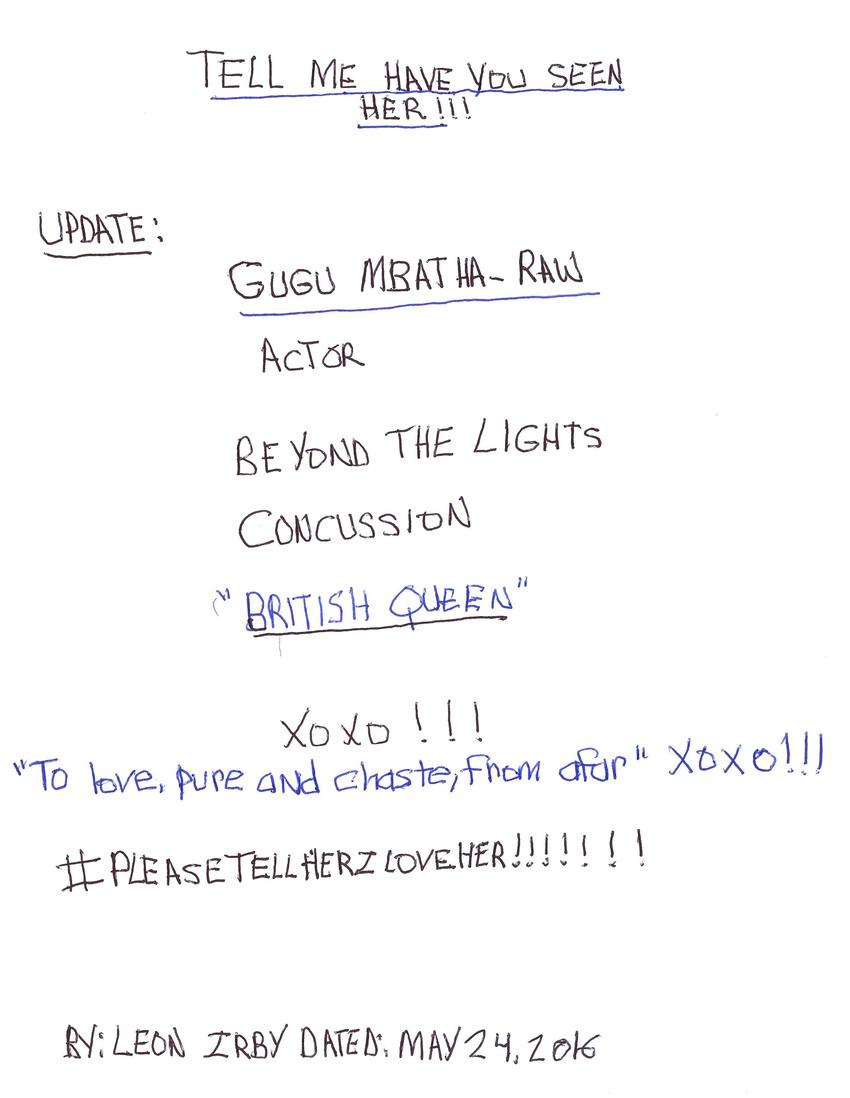 TELL ME HAVE YOU SEEN
HER!!!
UPDATE:
GUGU MBATHA-RAW
ACTOR
BEYOND THE LIGHTS
CONCUSSION
"BRITISH QUEEN"
XOXO!!!
"To love, pure and chaste, from afar" XOXO!!!
#PLEASETELLHERILOVEHER!!!!!!!
BY: LEON IRBY DATED: MAY 24, 2016